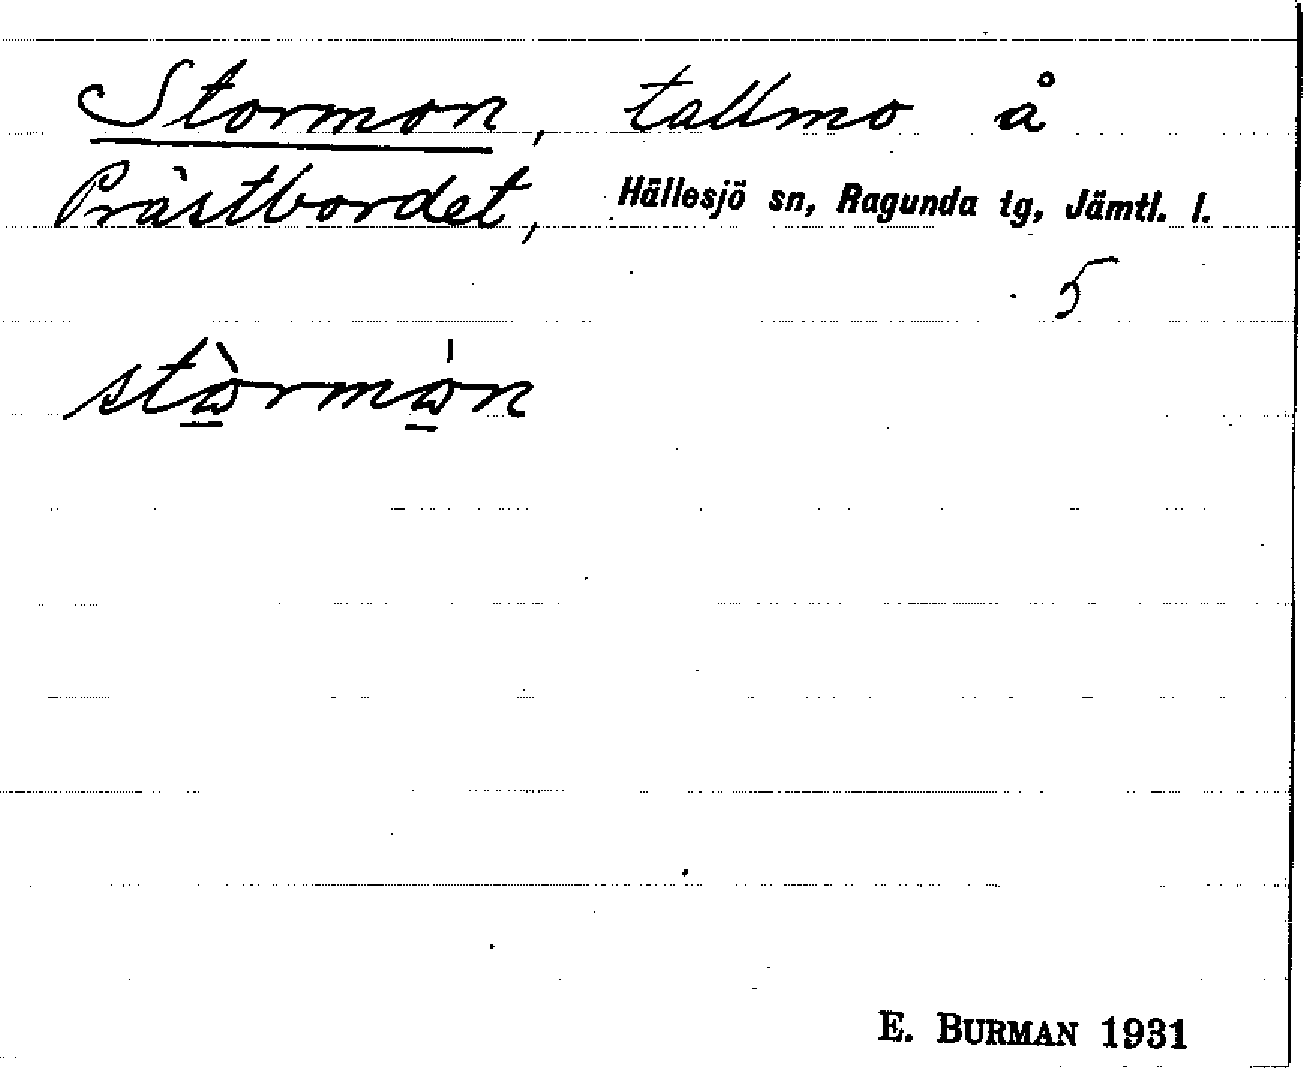 Stormon, tallmo å
Prästbordet, Hällesjö sn, Ragunda tg, Jämtl. l.
5
stòrmón
E. BURMAN 1931